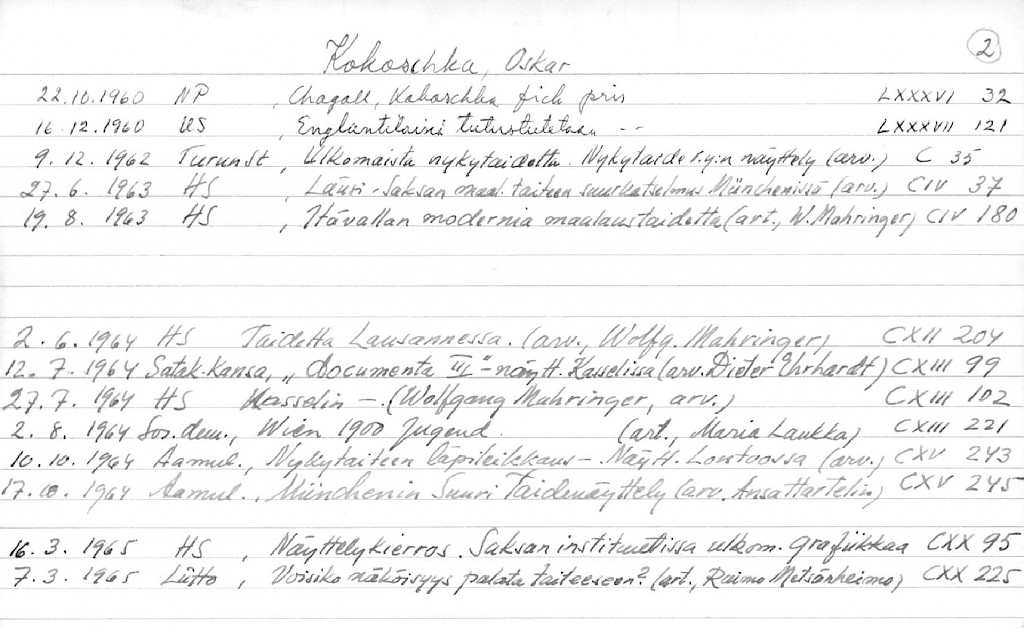 2
Kokoschka, Oskar
22.10.1960 NP , Chagall, Kokoschka fick pris LXXXVI 32
16.12.1960 US , Englantilaisia tutustutetaan -- LXXXVII 121
9.12.1962 Turunst , Ulkomaista nykytaidetta. Nykytaide r.y:n näyttely (arv.) C 35
27.6.1963 HS , Länsi-Saksan maal.taiteen suurkatselmus Münchenissä (arv.) CIV 37
19.8.1963 HS , Itävallan modernia maalaustaidetta (art., W. Mahringer) CIV 180
2.6.1964 HS Taidetta Lausannessa. (arv., Wolfg. Mahringer) CXII 204
12.7.1964 Satak.Kansa, "Documenta III"-näytt. Kasselissa (arv. Dieter Ehrhardt) CXIII 99
27.7.1964 HS Kasselin –. (Wolfgang Mahringer, arv.) CXIII 102
2.8.1964 Sos.dem., Wien 1900 Jugend. (art., Maria Laukka) CXIII 221
10.10.1964 Aamul., Nykytaiteen läpileikkaus – Näytt. Lontoossa (arv.) CXV 243
17.10.1964 Aamul., Münchenin Suuri Taidenäyttely (arv. Ansa Hartelin) CXV 245
16.3.1965 HS , Näyttelykierros. Saksan instituutissa ulkom. grafiikkaa CXX 95
7.3.1965 Liitto , Voisiko näköisyys palata taiteeseen? (art., Raimo Metsänheimo) CXX 225